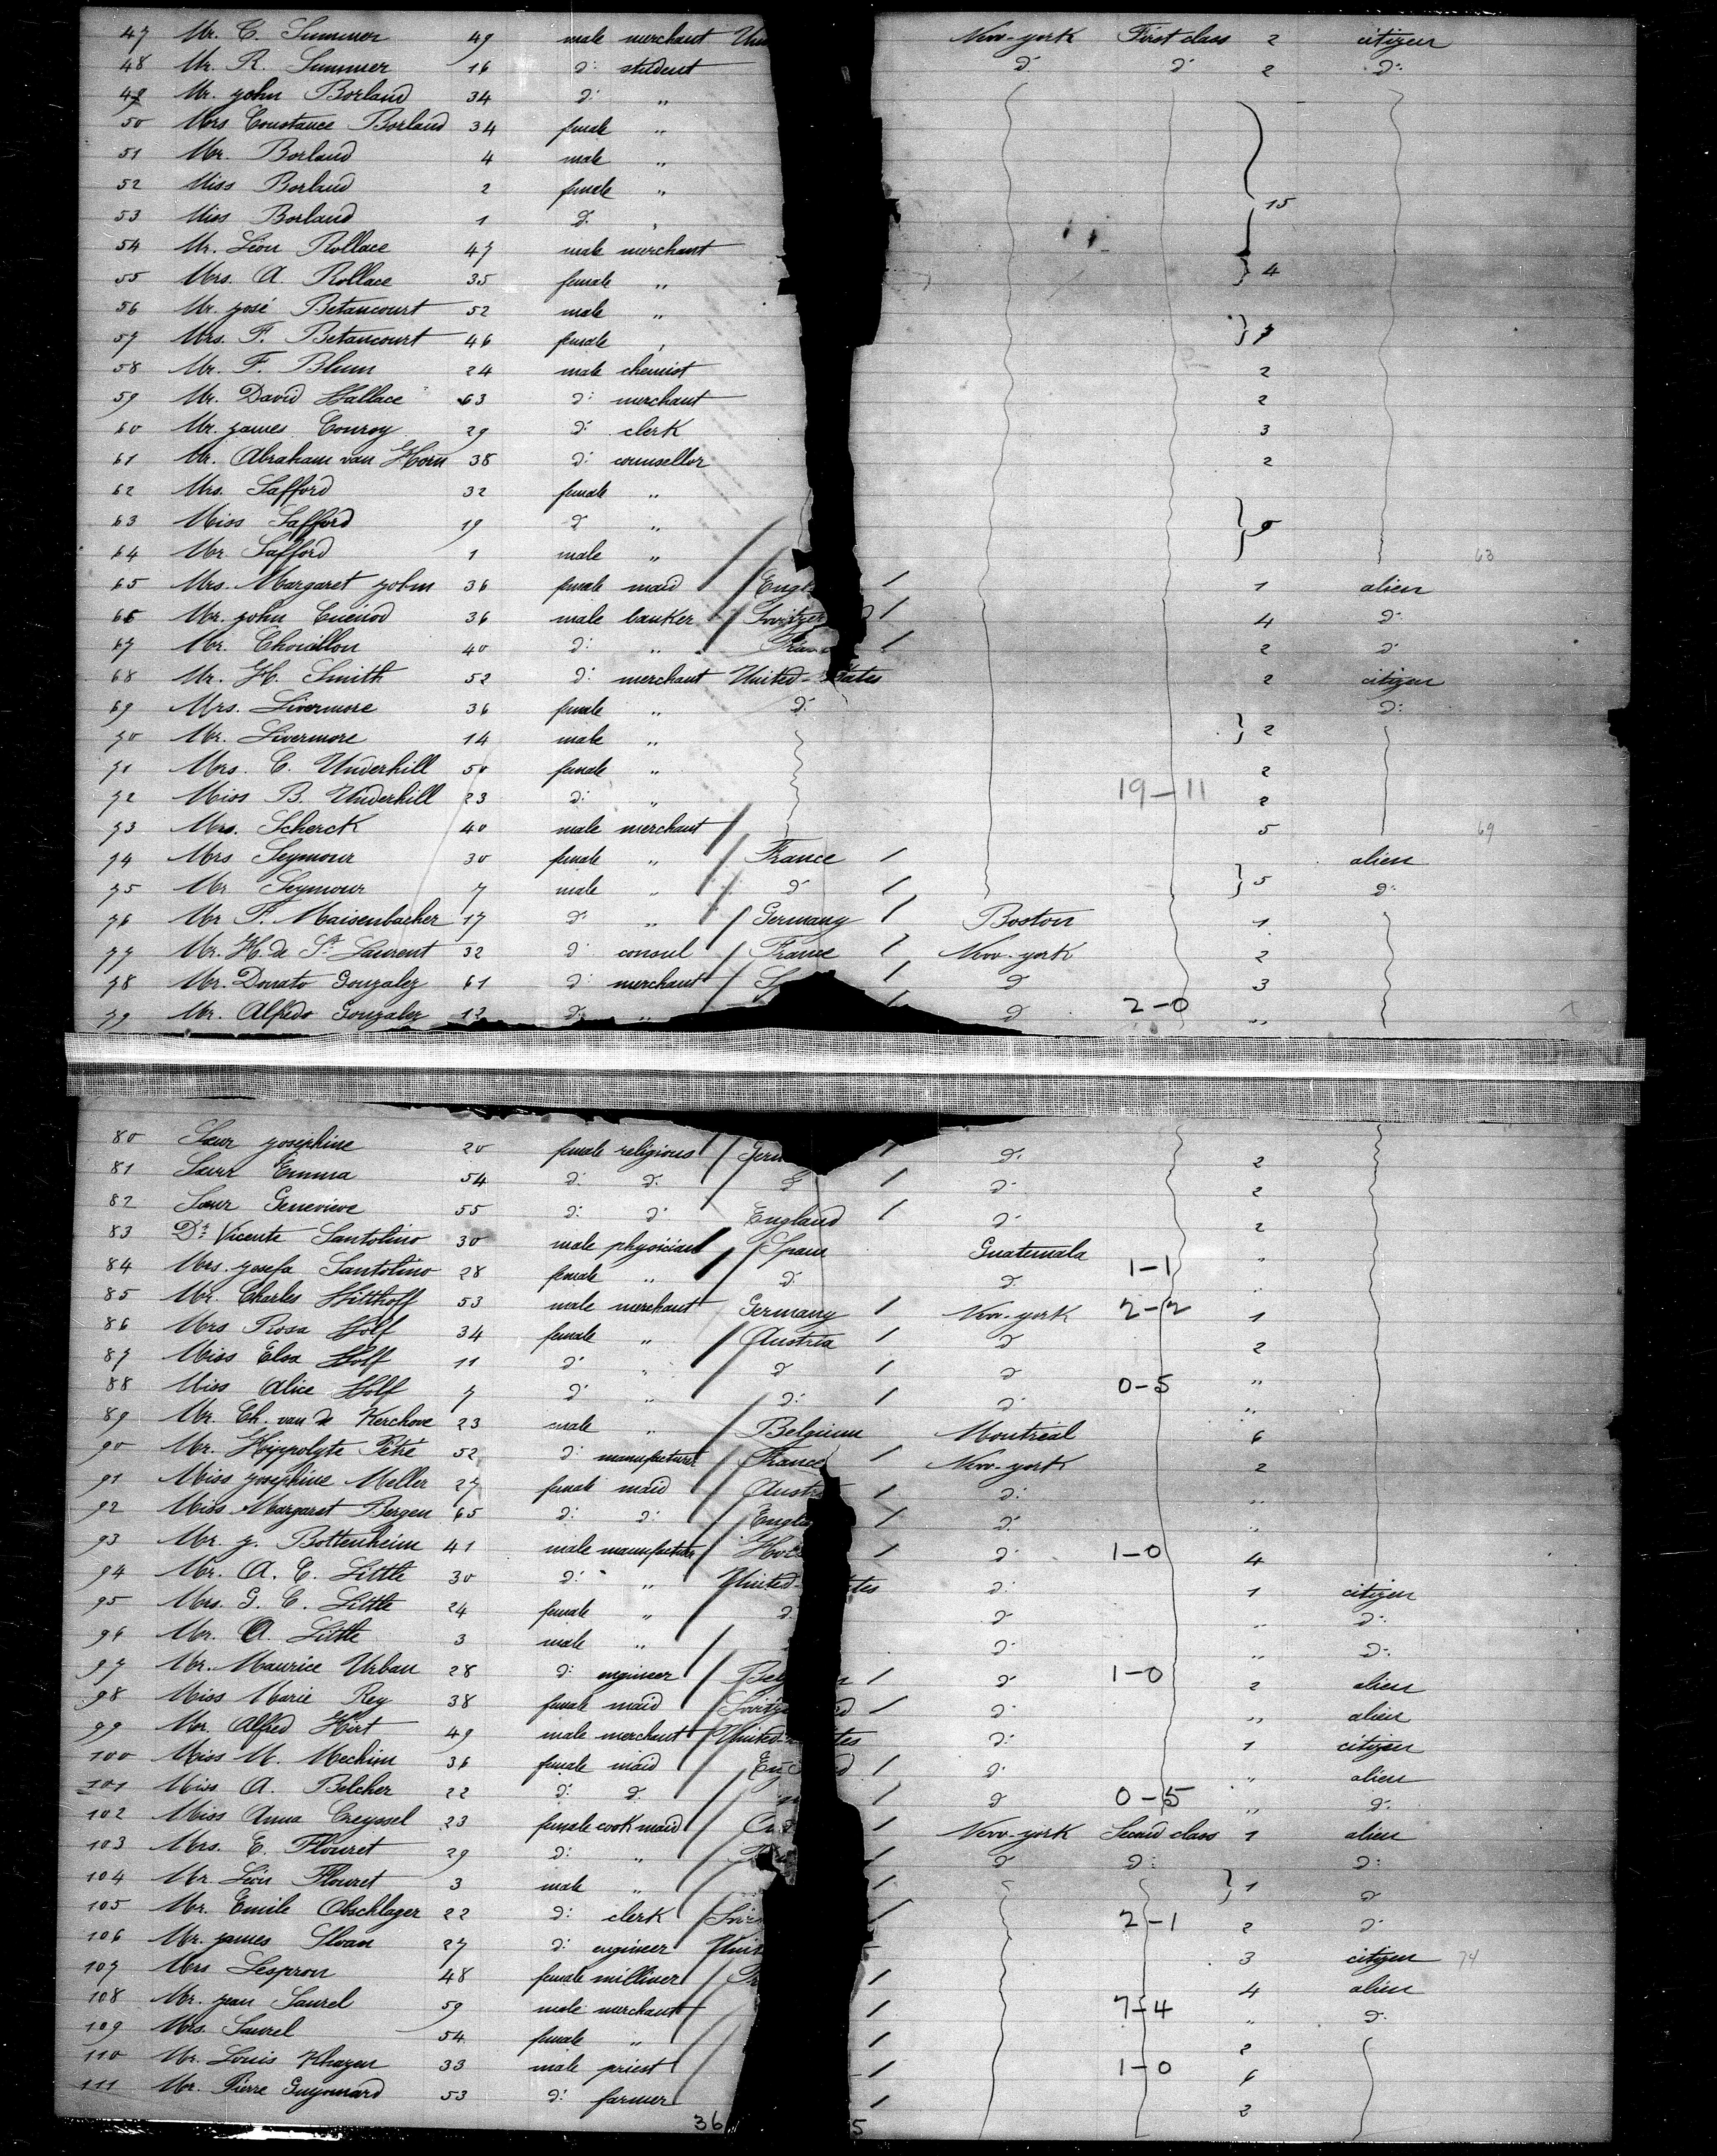 47 Mr. C. Summer 49 male merchant Un New-york First class 2 citizen
48 Mr. R. Summer 16 d: student d d 2 d:
49 Mr. john Borland 34 d: "
50 Mrs Constance Borland 34 female "
51 Mr. Borland 4 male "
52 Miss Borland 2 female "
53 Miss Borland 1 d. " 15
54 Mr. Léon Rollace 47 male merchant
55 Mrs. A. Rollace 35 female " 4
56 Mr. josé Betancourt 52 male "
57 Mrs. F. Betancourt 46 female " 7
58 Mr. F. Blum 24 male chemist 2
59 Mr. David Wallace 63 d: merchant 2
60 Mr. james Conroy 29 d: clerk 3
61 Mr. Abraham van Horn 38 d: counsellor 2
62 Mrs. Safford 32 female "
63 Miss Safford 19 d "
64 Mr. Safford 1 male " 63
65 Mrs. Margaret john 36 female maid Engl 1 alien
66 Mr. john Cuénod 36 male banker Switzer d 4 d:
67 Mr. Chouillon 40 d: " Fran 2 d
68 Mr. H. Smith 52 d: merchant United-States 2 citizen
69 Mrs. Livermore 36 female " d. d:
70 Mr. Livermore 14 male " 2
71 Mrs. C. Underhill 50 female " 2
72 Miss B. Underhill 23 d: " 19-11 2
73 Mrs. Scherck 40 male merchant 5 69
74 Mrs Seymour 30 female " France alien
75 Mr Seymour 7 male " d 5 d:
76 Mr F. Maisenbacher 17 d: " Germany Boston 1
77 Mr. H. de St. Laurent 32 d: consul France New-york 2
78 Mr. Donato Gonzalez 61 d: merchant Sp d 3
79 Mr. Alfredo Gonzalez 12 d: " d 2-0 "
80 Sœur joséphine 20 female religious Germ d: 2
81 Sœur Emma 54 d: d: d d: 2
82 Sœur Geneviève 55 d: d: England d: 2
83 Dr. Vicente Santolino 30 male physician Spain Guatemala "
84 Mrs. josefa Santolino 28 female " d. d. 1-1 "
85 Mr. Charles Witthoff 53 male merchant Germany New-york 2-2 1
86 Mrs Rosa Wolf 34 female " Austria d 2
87 Miss Elsa Wolf 11 d: " d d "
88 Miss Alice Wolf 7 d: " d: d: 0-5 "
89 Mr. Ch. van de Kerchove 23 male " Belgium Montréal 6
90 Mr. Hippolyte Pétré 52 d: manufacturer France New-york 2
91 Miss joséphine Meller 27 female maid Austr d: "
92 Miss Margaret Bergen 65 d: d: Engla d: "
93 Mr. j. Bottenheim 41 male manufacturer Hol d 1-0 4
94 Mr. A. C. Little 30 d: " United- tes d: 1 citizen
95 Mrs. G. C. Little 24 female " d. d " d:
96 Mr. A. Little 3 male " d: " d:
97 Mr. Maurice Urban 28 d: engineer Belg d 1-0 2 alien
98 Miss Marie Rey 38 female maid Switze d d: " alien
99 Mr. Alfred Hirt 49 male merchant United- tes d: 1 citizen
100 Miss M. Mechim 36 female maid Eng d d: " alien
101 Miss A. Belcher 22 d: d: d 0-5 " d:
102 Miss Anna Creyssel 23 female cook maid New-york Second class 1 alien
103 Mrs. E. Flouret 29 d: " d d: d:
104 Mr Léon Flouret 3 male " 1 d
105 Mr. Emile Obschlager 22 d: clerk Swi 2-1 2 d:
106 Mr. james Sloan 27 d: engineer Unit 3 citizen 74
107 Mrs Lespron 48 female milliner Fr 4 alien
108 Mr. jean Saurel 59 male merchant 7-4 " d:
109 Mrs. Saurel 54 female " 2
110 Mr. Louis Khazen 33 male priest 1-0 6
111 Mr. Pierre Guyomard 53 d: farmer 2
36 5